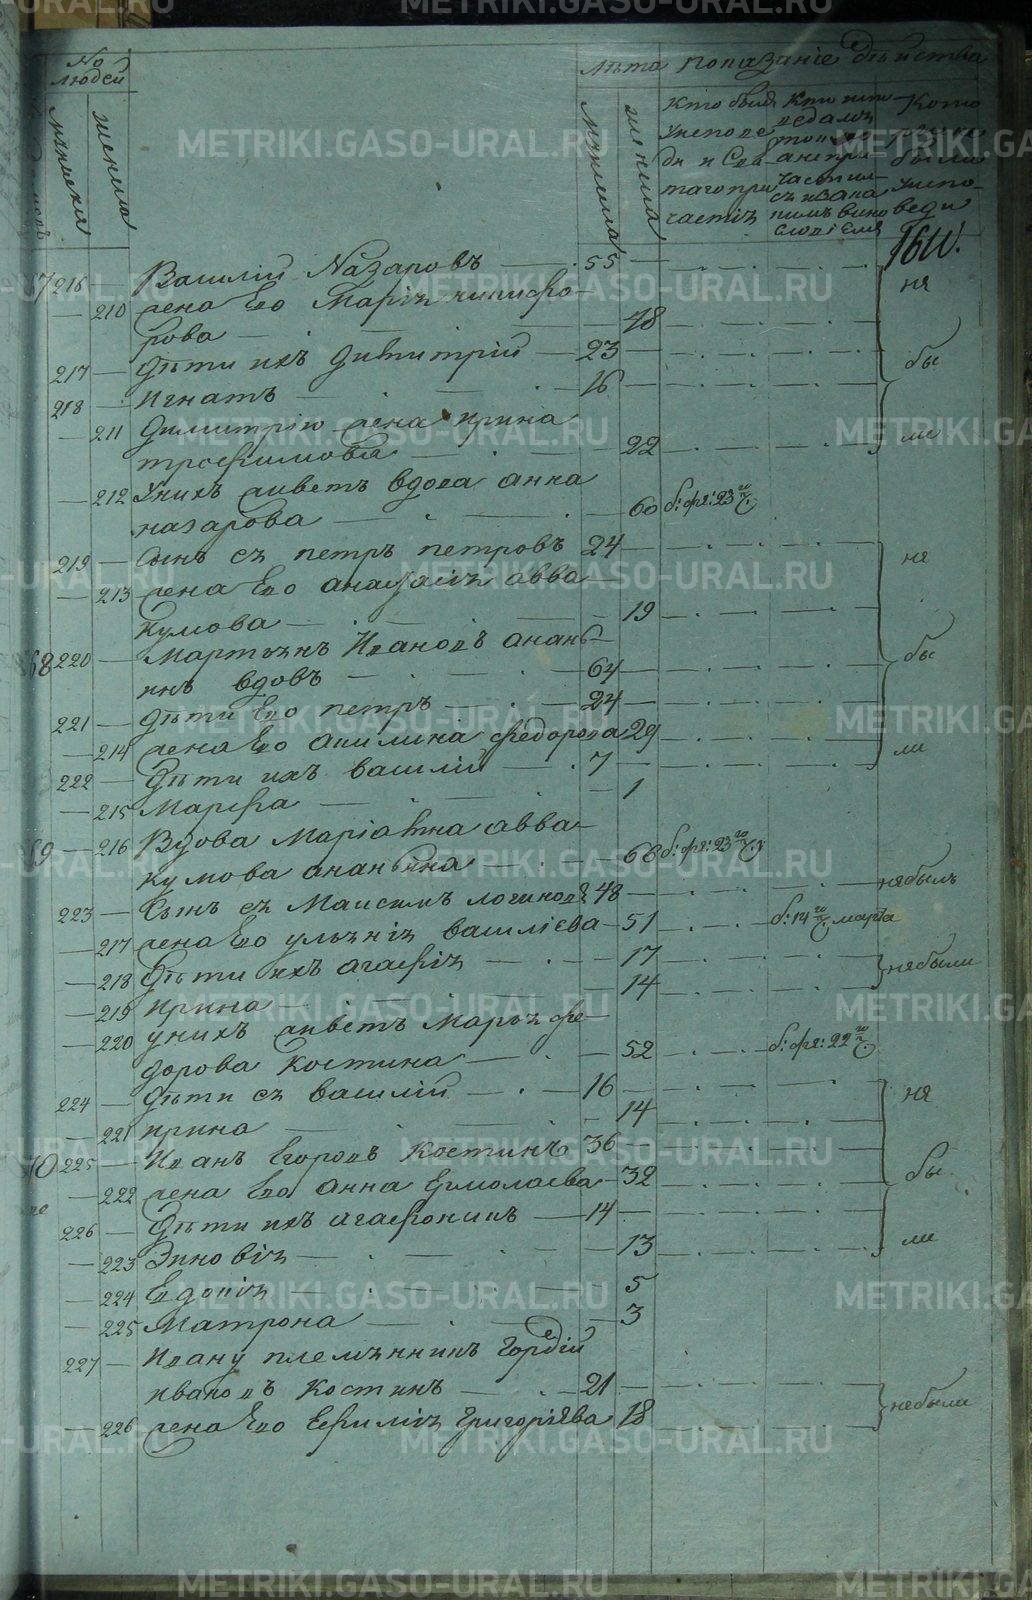 METRIKI.GASO-URAL.RU
No людей
мужеска
женска
Лѣта
мужеска
женска
показаніе дѣйства
Кто были
у исповѣ
ди и Свя
таго при
частія
Кто испо
ведалъ
токмо
а не при
частил
съ и за ка
кимъ вино
словіемъ
Кото
рые не
были
у испо
веди
161
67 216 — Василій Назаровъ — 55 —
— 210 жена Его Марія никифо
рова — 48 — не
217 — дѣти ихъ Димитрій — 23 — бы
218 — Игнатъ — 16 —
— 211 Димитрію жена Ирина
трофимова — 22 — ли
— 212 У нихъ живетъ вдова анна
назарова — 60 б: фев: 23
219 — Сынъ ея петръ петровъ 24 — не
— 213 жена Его анастасія авва
кумова — 19
68 220 — Мартынъ Ивановъ анань
инъ вдовъ — 64 — бы
221 — дѣти Его петръ — 24 —
— 214 жена Его акилина федорова 29 — ли
222 — Дѣти ихъ василій — 7 —
— 215 Марфа — 1
69 — 216 Вдова Маріамна авва
кумова ананьина — 68 б: фев: 23
223 — Сынъ ея Максимъ логиновъ 48 — небылъ
— 217 жена Его ульянія василіева — 51 б: 14 марта
— 218 Дѣти ихъ агафія — 17 — небыли
— 219 Ирина — 14
— 220 у нихъ живетъ Марья фе
дорова Костина — 52 — б: фев: 22
224 — дѣти ея василій — 16 — не
— 221 ирина — 14
70 225 — Иванъ Егоровъ Костинъ 36
— 222 жена Его анна Ермолаева — 32 бы
226 — Дѣти ихъ агафоникъ — 14 —
— 223 Зиновія — 13 ли
— 224 Евдокія — 5
— 225 Матрона — 3
227 — Ивану племянникъ Гордій
ивановъ Костинъ — 21 — небыли
— 226 жена Его Ефимія Григоріева 18